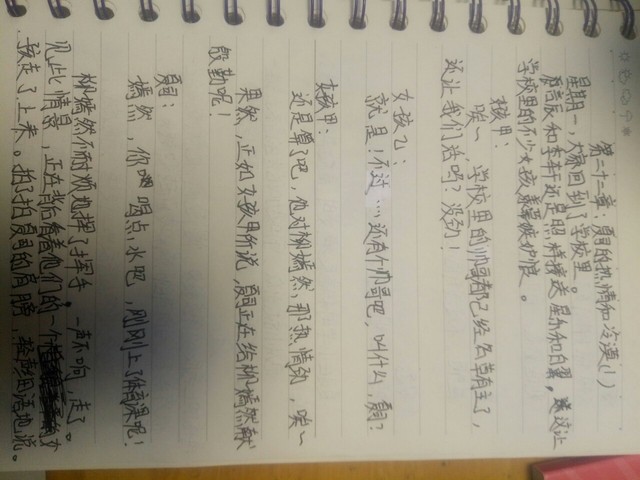 第二十二章：勇的热情和冷漠（1）
星期一，大家回到了学校里。
辰和李轩还是照样接送星尔和白翼，这让
学校里的不少女孩羡慕嫉妒恨。
女孩甲：
唉～，学校里的帅哥都已经名草有主了，
还让我们活吗？没劲！
女孩乙：
就是！不过…，还有个帅哥吧，叫什么，勇？
女孩甲：
还是算了吧，他对柳嫣然，那热情劲，唉～
果然，正如女孩甲所说，勇正在给柳嫣然献
殷勤呢！
勇：
嫣然，你喝点水吧，刚刚上了体育课吧！
柳嫣然不耐烦地挥了挥手。一声不响，走了。
见此情景，正在背后看着他们的一个
孩走了上来。拍了拍勇的肩膀，地说。